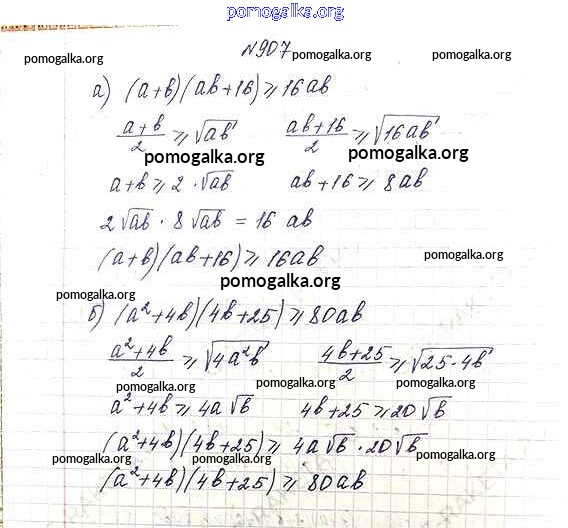 pomogalka.org
№907
pomogalka.org pomogalka.org pomogalka.org
а) (a+b)(ab+16)≥16ab
(a+b)/2 ≥ √ab (ab+16)/2 ≥ √16ab
pomogalka.org pomogalka.org
a+b≥2·√ab ab+16≥8ab
2√ab · 8√ab = 16 ab
(a+b)(ab+16)≥16ab
pomogalka.org
pomogalka.org
pomogalka.org
б) (a²+4b)(4b+25)≥80ab
(a²+4b)/2 ≥ √4a²b (4b+25)/2 ≥ √25·4b
pomogalka.org pomogalka.org pomogalka.org
a²+4b≥4a√b 4b+25≥20√b
(a²+4b)(4b+25)≥4a√b·20√b
pomogalka.org pomogalka.org pomogalka.org
(a²+4b)(4b+25)≥80ab